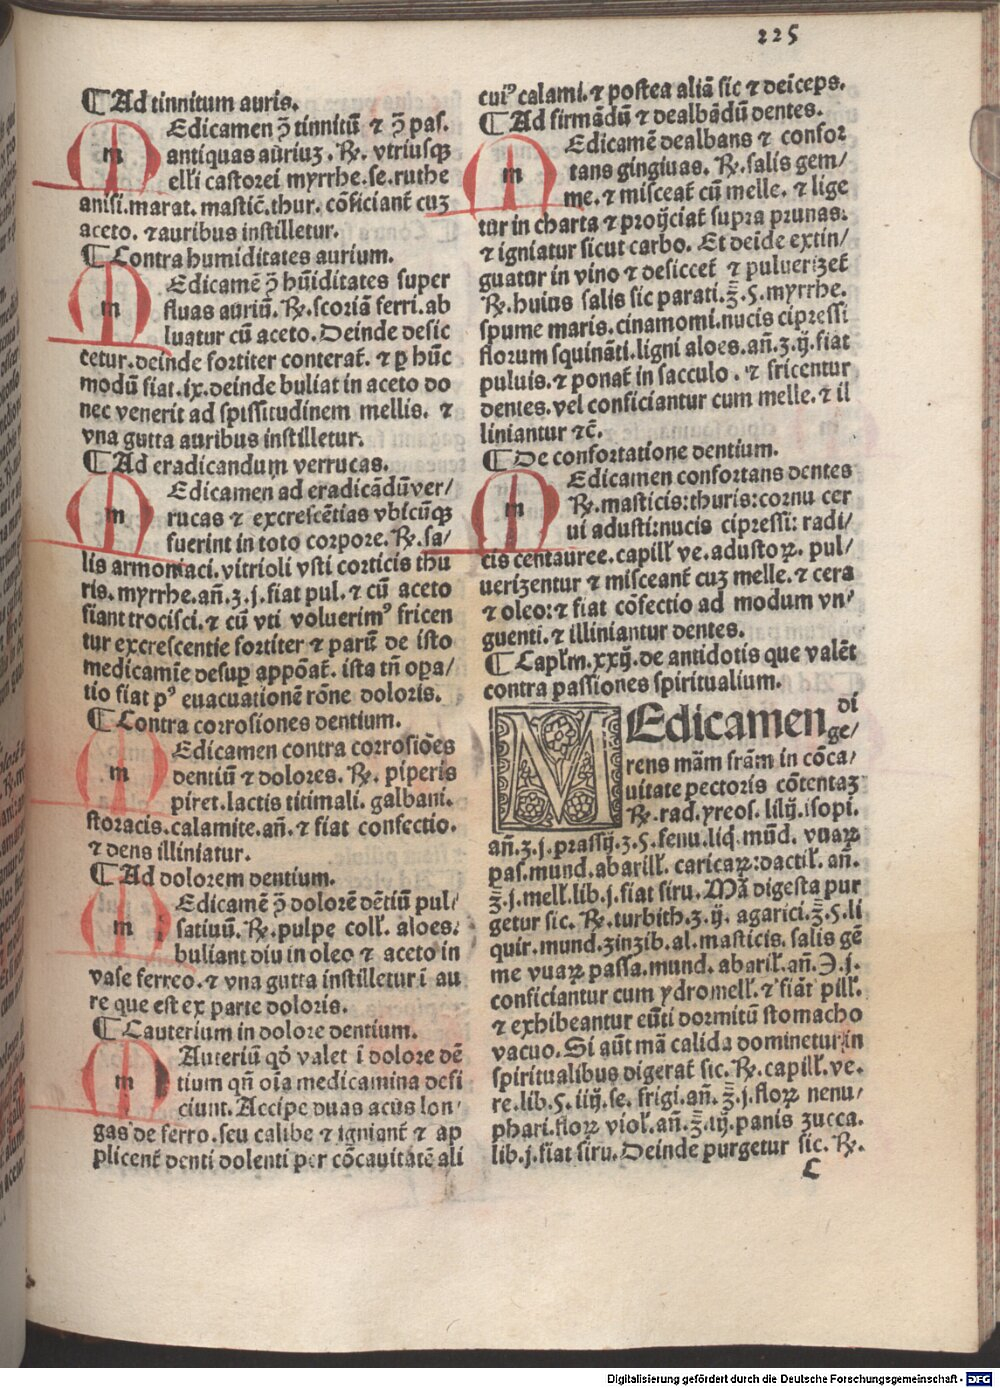 225
¶Ad tinnitum auris.
m
MEdicamen ꝯ̄ tinnitū ⁊ ꝯ̄ paſ.
antiquas auriuꝫ. ℞. vtriuſqꝫ
elli caſtorei myrrhe.ſe.ruthe
aniſi.marat. maſtic̄.thur. cōficiant̄ cuꝫ
aceto. ⁊auribus inſtilletur.
¶Contra humiditates aurium.
m
MEdicamē ꝯ̄ hūiditates ſuper
fluas auriū. ℞.ſcoriā ferri.ab
luatur cū aceto.Deinde deſic
cetur.deinde fortiter conterat̄. ⁊ ꝑ hūc
modū fiat.ix.deinde buliat in aceto do
nec venerit ad ſpiſſitudinem mellis. ⁊
vna gutta auribus inſtilletur.
¶Ad eradicandum verrucas.
m
MEdicamen ad eradicādū ver/
rucas ⁊ excreſcētias vbicūqꝫ
fuerint in toto corpore. ℞.ſa/
lis armoniaci.vitrioli vſti corticis thu
ris.myrrhe.añ.ʒ.j.fiat pul.⁊ cū aceto
fiant trociſci.⁊ cū vti voluerimꝰ fricen
tur excreſcentie fortiter ⁊ parū de iſto
medicamīe deſuꝑ appōat̄. iſta tñ oꝑa/
tio fiat pꝰ euacuationē rōne doloris.
¶Contra corroſiones dentium.
m
MEdicamen contra corroſiōes
dentiū ⁊ dolores. ℞. piperis
piret.lactis titimali. galbani.
ſtoracis.calamite.añ.⁊ fiat confectio.
⁊ dens illiniatur.
¶Ad dolorem dentium.
m
MEdicamē ꝯ̄ dolorē dētiū pul/
ſatiuū. ℞.pulpe coll̄. aloes.
buliant diu in oleo ⁊ aceto in
vaſe ferreo.⁊ vna gutta inſtilletur ī au
re que eſt ex parte doloris.
¶Cauterium in dolore dentium.
m
Auteriū qō valet ī dolore dē
tium qñ oīa medicamina defi
ciunt.Accipe duas acus lon/
gas de ferro.ſeu calibe ⁊ igniant̄ ⁊ ap
plicent̄ denti dolenti per cōcauitātē ali
cuiꝰ calami.⁊ poſtea aliā ſic ⁊ deīceps.
¶Ad firmādū ⁊ dealbādū dentes.
m
MEdicamē dealbans ⁊ confor
tans gingiuas. ℞.ſalis gem/
me.⁊ miſceat̄ cū melle. ⁊ lige
tur in charta ⁊ proijciat̄ ſupra prunas.
⁊ igniatur ſicut carbo. Et deīde extin/
guatur in vino ⁊ deſiccet̄ ⁊ puluerizet̄
℞.huius ſalis ſic parati.ʒ̄.ſ.myrrhe.
ſpume maris.cinamomi.nucis cipreſſi
florum ſquināti.ligni aloes.añ.ʒ.ij.fiat
puluis.⁊ ponat̄ in ſacculo. ⁊ fricentur
dentes.vel conficiantur cum melle.⁊ il
liniantur ⁊c̄.
¶De confortatione dentium.
m
MEdicamen confortans dentes
℞.maſticis:thuris:cornu cer
ui aduſti:nucis cipreſſi: radi/
cis centauree.capill̄ ve.aduſtoꝝ. pul/
uerizentur ⁊ miſceant̄ cuꝫ melle.⁊ cera
⁊ oleo:⁊ fiat cōfectio ad modum vn/
guenti.⁊ illiniantur dentes.
¶Capl̄m.xxij.de antidotis que valēt
contra paſſiones ſpiritualium.
MEdicamen di
ge/
rens mām frām in cōca/
uitate pectoris cōtentaꝫ
℞.rad.yreoſ.lilij.iſopi.
añ.ʒ.j.praſſij.ʒ.ſ.fenu.liq.mūd. vuaꝝ
paſ.mund.abarill̄. caricaꝝ:dactil̄. añ.
ʒ̄.j.mell̄.lib.j.fiat ſiru. Mā digeſta pur
getur ſic. ℞.turbith.ʒ.ij. agarici.ʒ̄.ſ.li
quir.mund.zinzib.al.maſticis. ſalis gē
me vuaꝝ paſſa.mund. abaril̄.añ.℈.j.
conficiantur cum ydromell̄.⁊ fiāt pill̄.
⁊ exhibeantur eūti dormitū ſtomacho
vacuo.Si aūt mā calida dominetur in
ſpiritualibus digerat̄ ſic. ℞.capill̄.ve.
re.lib.ſ.iiij.ſe.frigi.añ.ʒ̄.j.floꝝ nenu/
phari.floꝝ viol̄.añ.ʒ̄.iij.panis zucca.
lib.j.fiat ſiru.Deinde purgetur ſic. ℞.
C
Digitalisierung gefördert durch die Deutsche Forschungsgemeinschaft - DFG